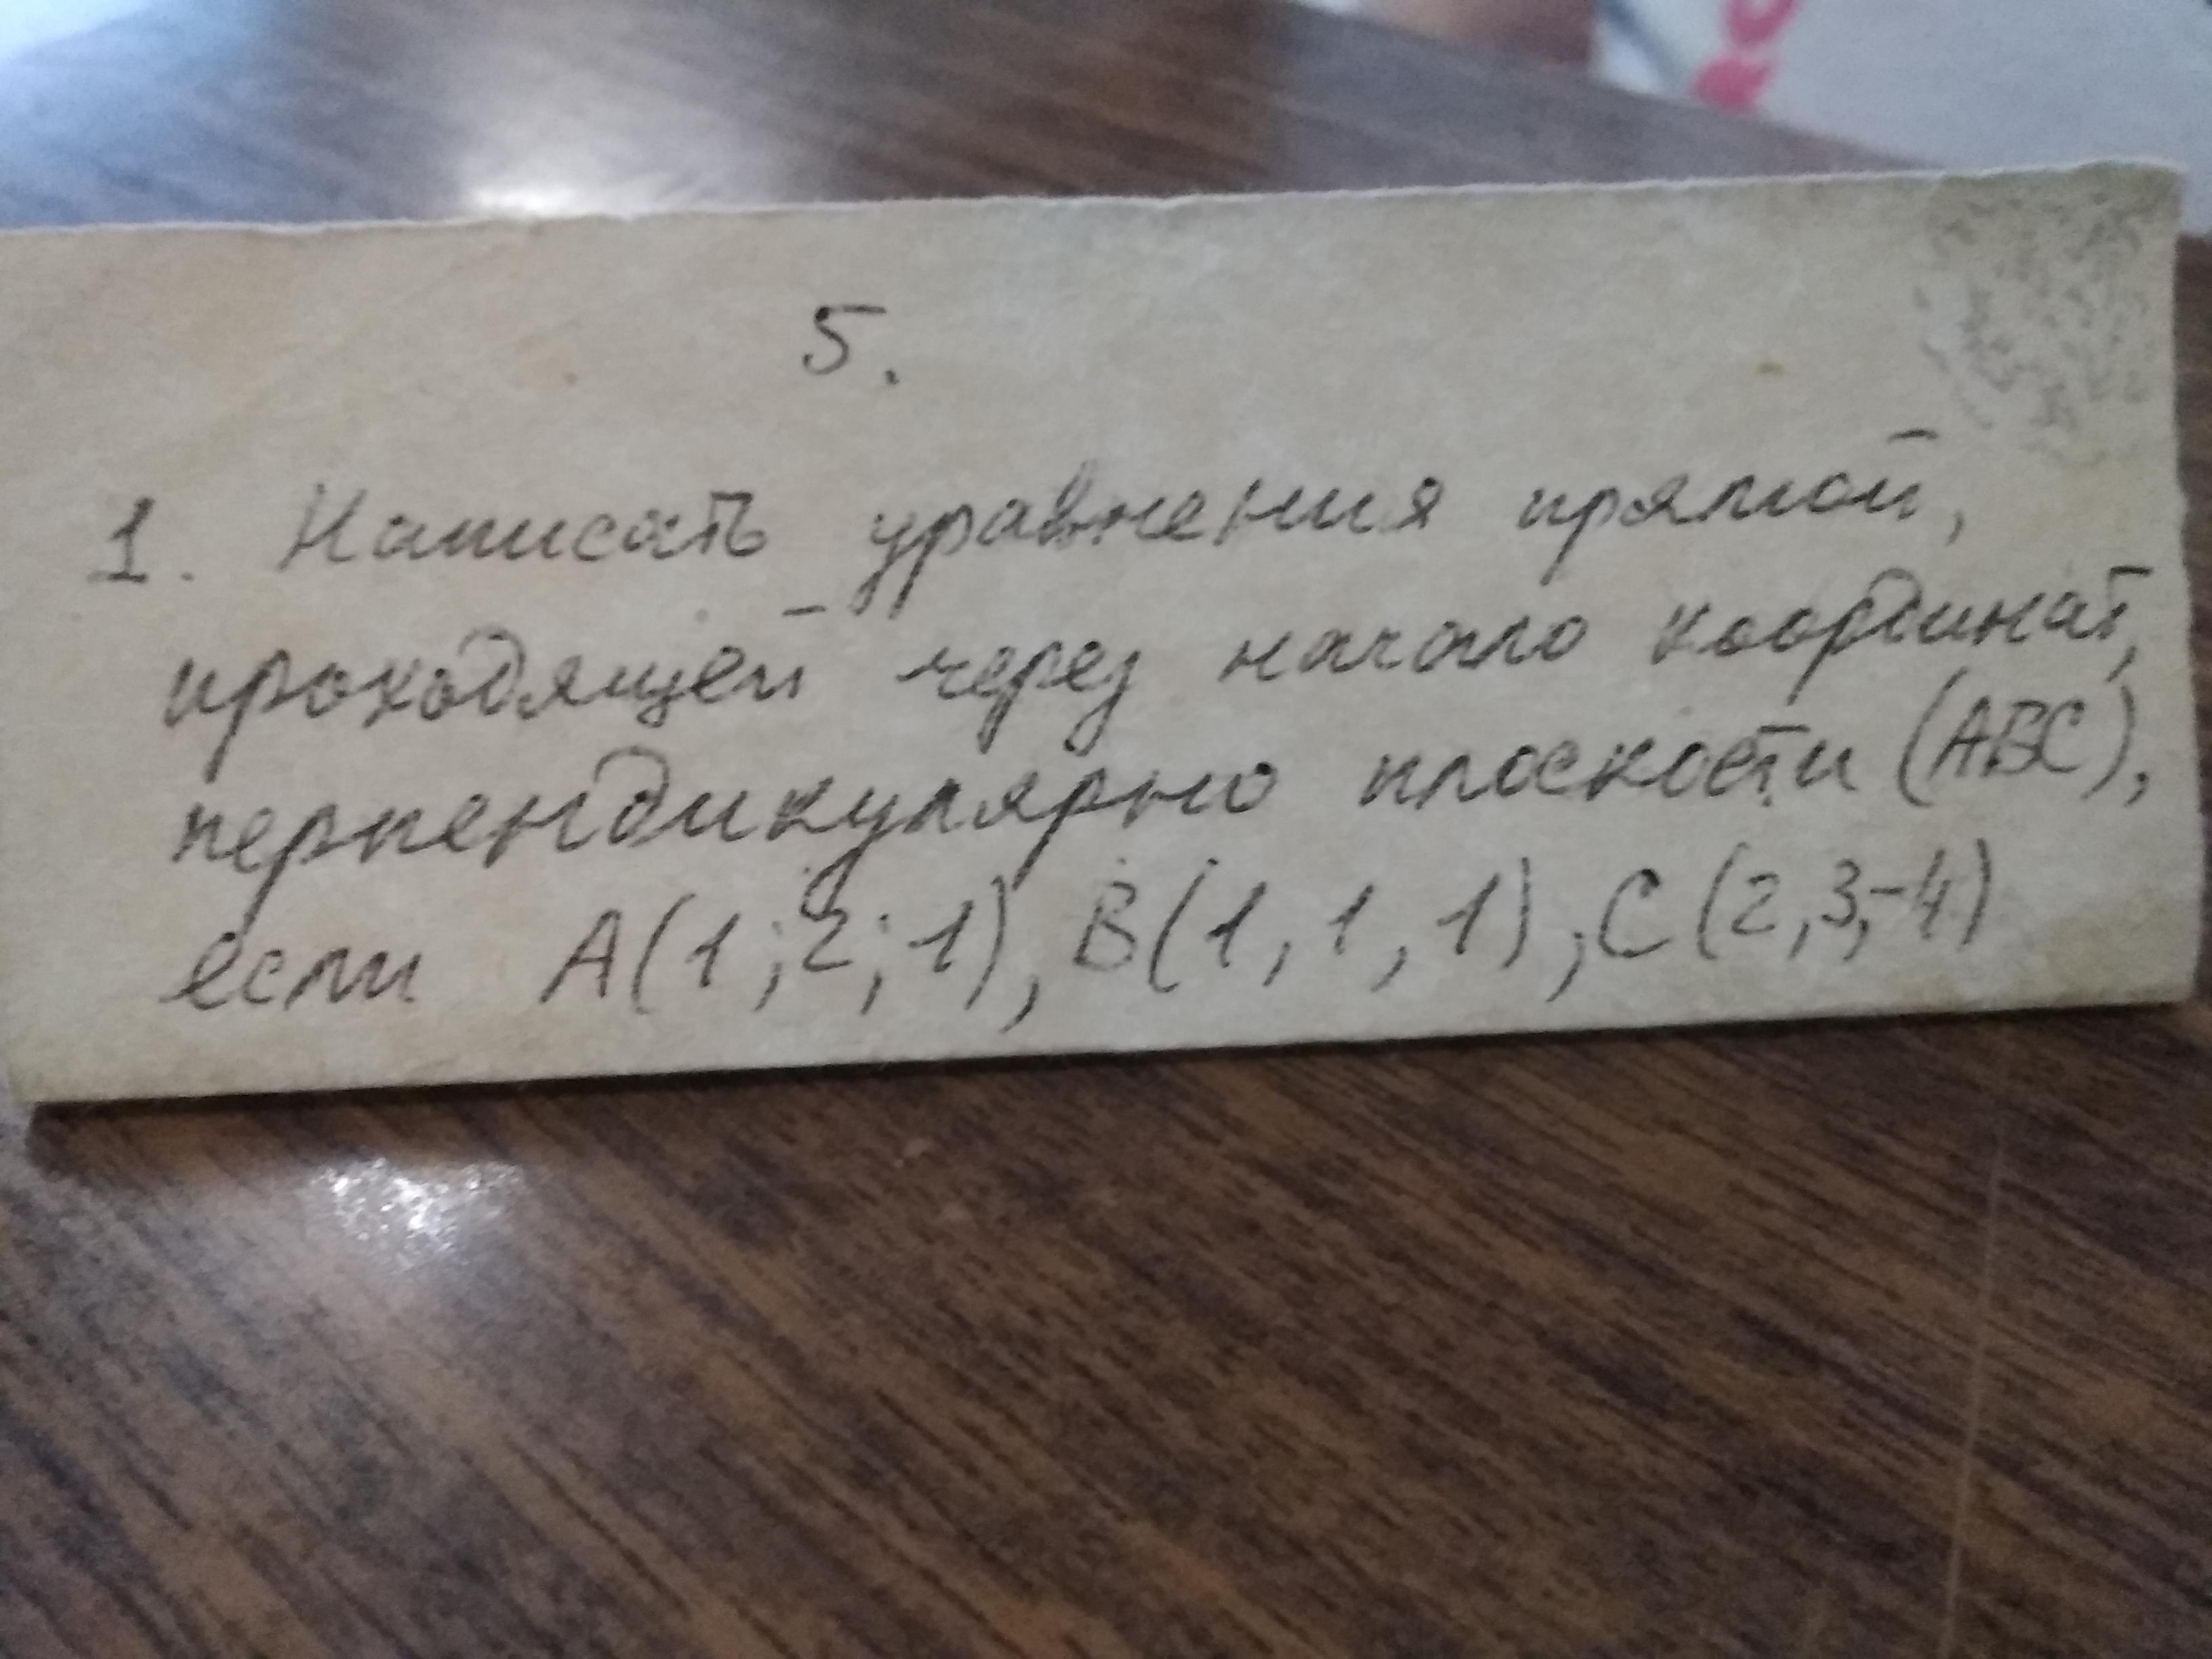 5.
1. Написать уравнения прямой,
проходящей через начало координат,
перпендикулярно плоскости (ABC),
если A(1;2;1), B(1,1,1), C(2,3,-4)